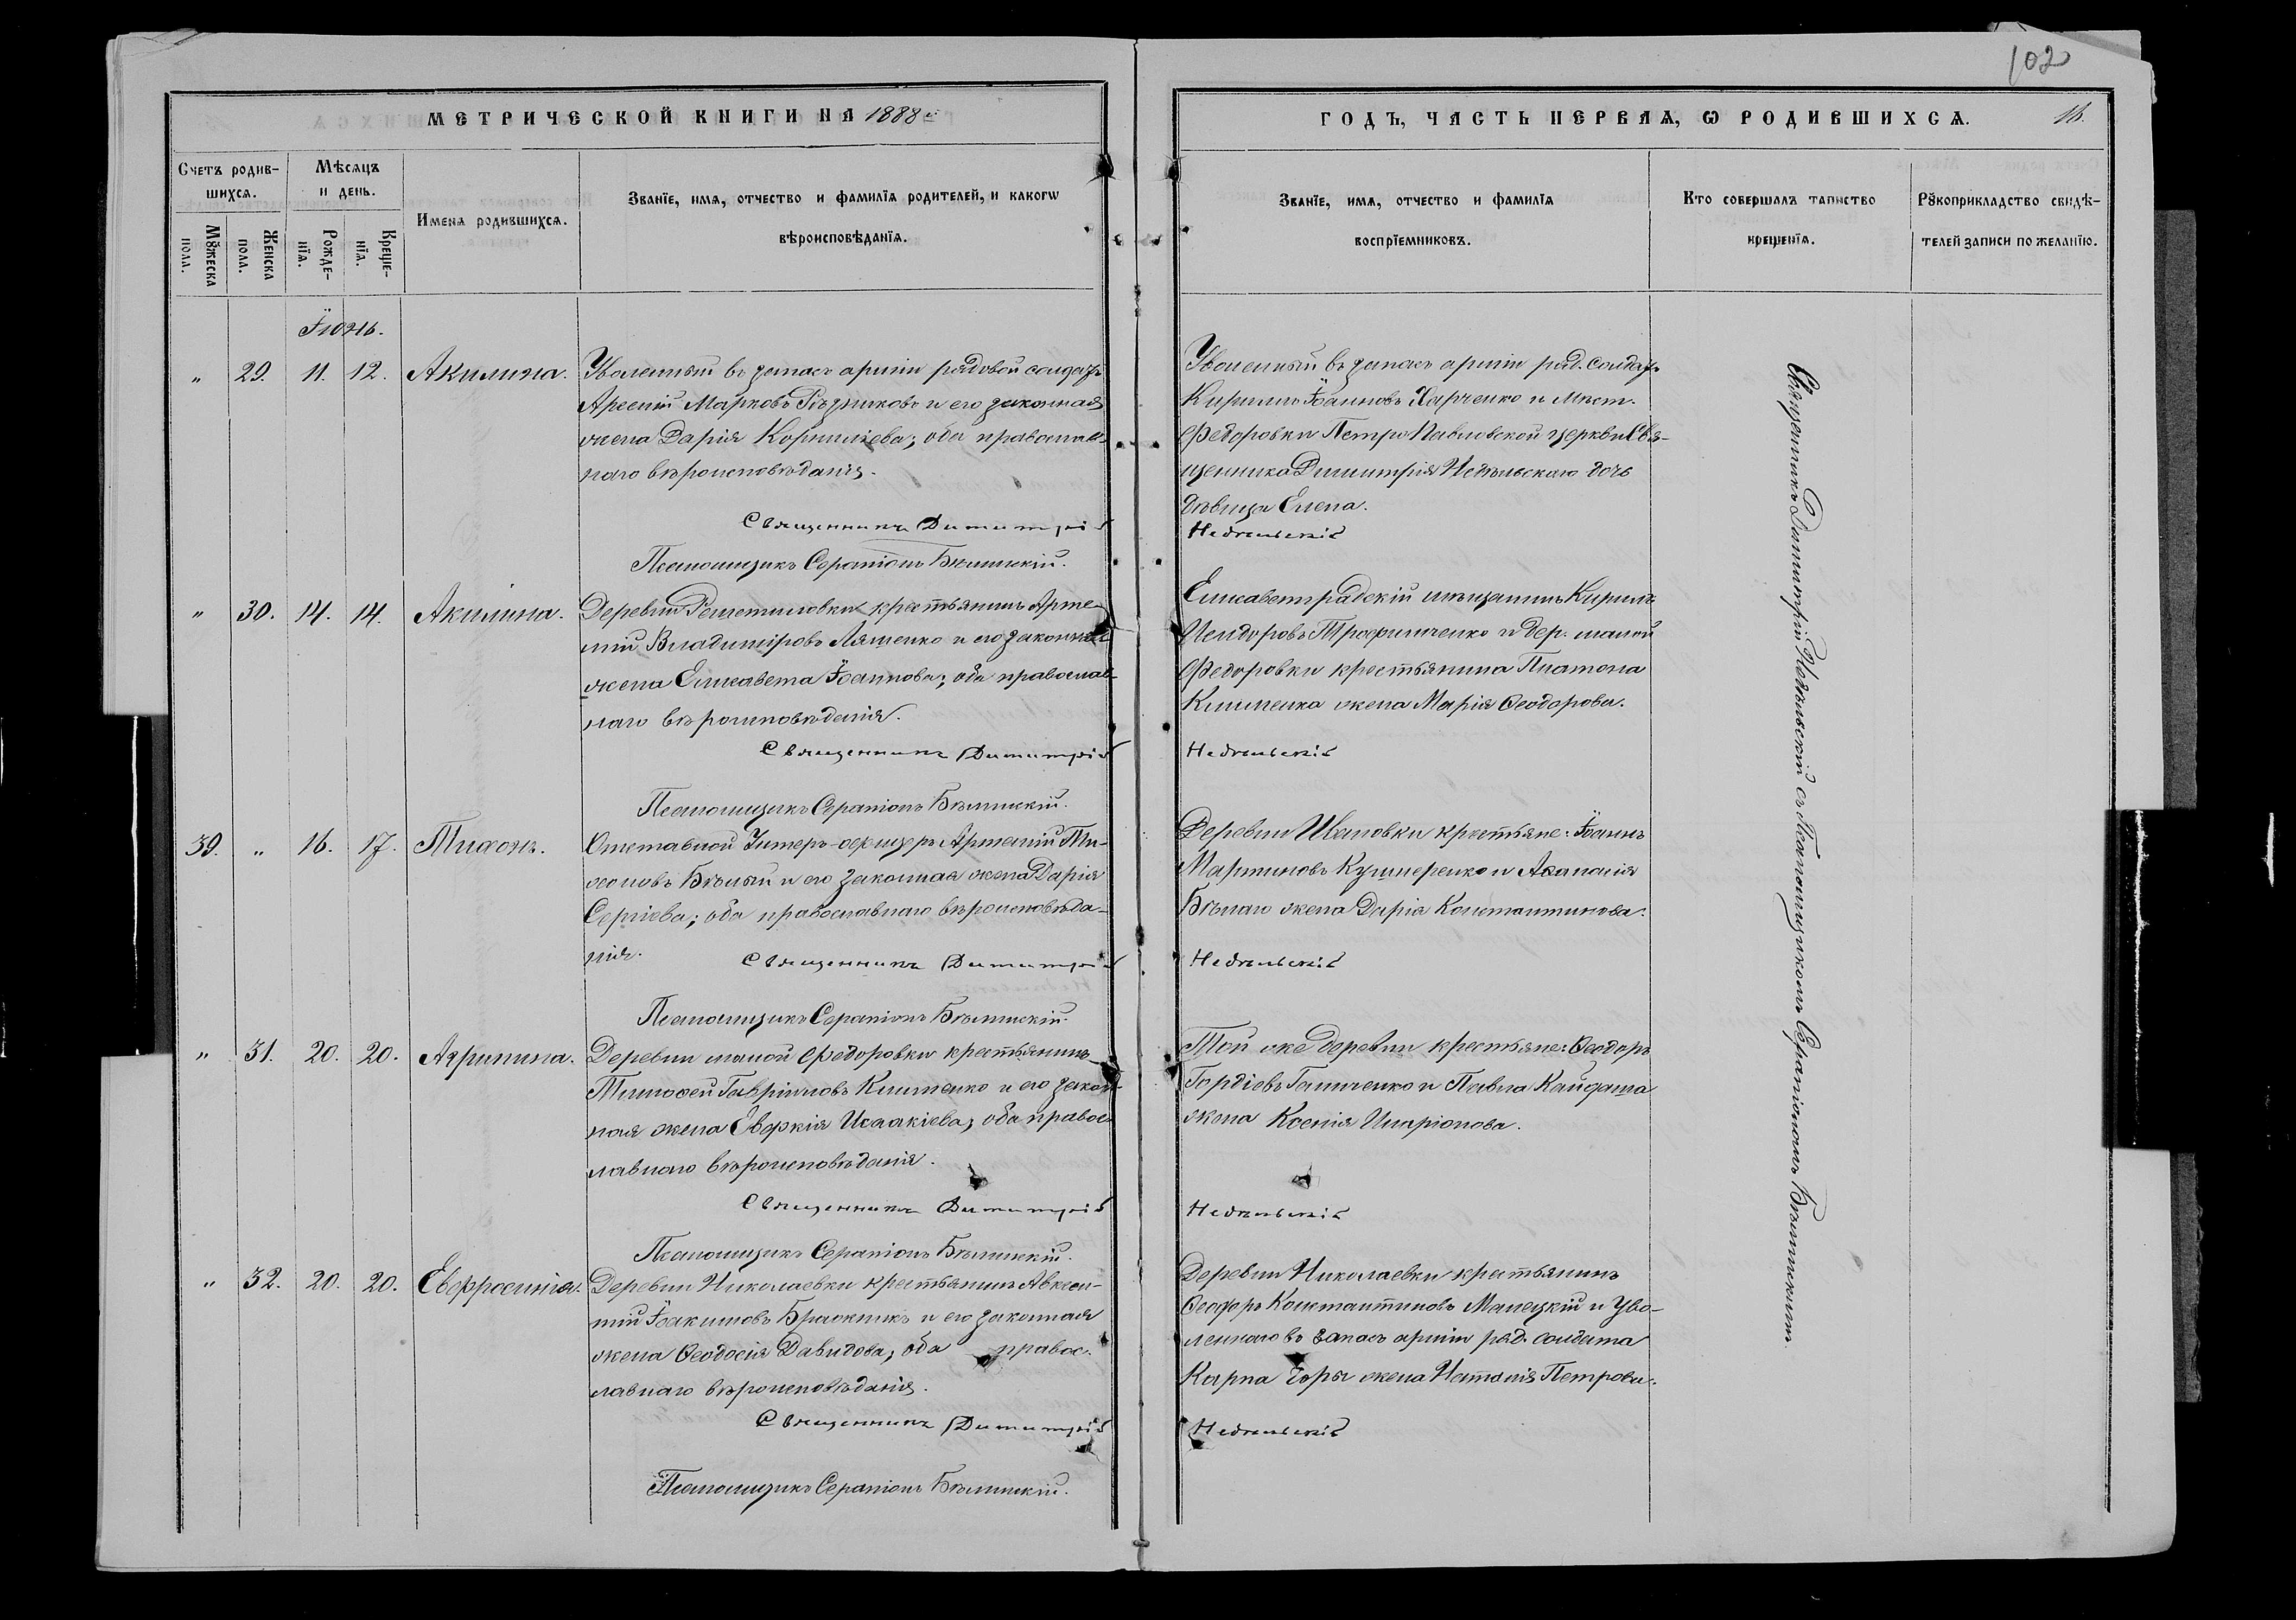 102
МЕТРИЧЕСКОЙ КНИГИ НА 1888 й
ГОДЪ, ЧАСТЬ ПЕРВАЯ, Ѡ РОДИВШИХСѦ.
Счетъ родив-
шихсѧ.
Мѣсяцъ
и день.
Имена родившихсѧ.
Званїе, имѧ, отчество и фамилїѧ родителей, и какогѡ
вѣроисповѣданїѧ.
Мꙋжеска
пола.
Женска
пола.
Рожде-
нїѧ.
Креще-
нїѧ.
Званїе, имѧ, отчество и фамилїѧ
воспрїемниковъ.
Кто совершалъ таинство
крещенїѧ.
Рꙋкоприкладство свидѣ-
телей записи по желанїю.
Їюнь.
" 29. 11. 12. Акилина.
Уволенный въ запасъ арміи рядовой солдатъ
Арсеній Марковъ Рѣзниковъ и его законная
жена Дарія Корниліева; оба православ-
наго вѣроисповѣданія.
Священникъ Димитрій
Псаломщикъ Серапіонъ Бѣлинскій.
Уволенный въ запасъ арміи ряд. солдатъ
Кириллъ Їоанновъ Харченко и Мѣст.
Федоровки Петро Павловской церкви Свя-
щенника Димитрія Недѣльскаго дочь
дѣвица Елена.
Недѣльскій
" 30. 14. 14. Акилина.
Деревни Решетиловки крестьянинъ Арте-
мій Владиміровъ Ляшенко и его законная
жена Елисавета Їоаннова; оба православ-
наго вѣроисповѣданія.
Священникъ Димитрій
Псаломщикъ Серапіонъ Бѣлинскій.
Елисаветградскій мѣщанинъ Кириллъ
Исидоровъ Трофимченко и дер. малой
Федоровки крестьянина Платона
Клименка жена Марія Ѳеодорова.
Недѣльскій
39. " 16. 17. Тихонъ.
Отставной Унтеръ-офицеръ Артемій Ти-
хоновъ Бѣлый и его законная жена Дарія
Сергіева; оба православнаго вѣроисповѣда-
нія.
Священникъ Димитрій
Псаломщикъ Серапіонъ Бѣлинскій.
Деревни Ивановки крестьяне: Їоаннъ
Мартиновъ Кушнеренко и Аѳанасія
Бѣлаго жена Дарія Константинова.
Недѣльскій
" 31. 20. 20. Агрипина.
Деревни малой Федоровки крестьянинъ
Тимоѳей Гавріиловъ Клименко и его закон-
ная жена Евфкія Исаакіева; оба правос-
лавнаго вѣроисповѣданія.
Священникъ Димитрій
Псаломщикъ Серапіонъ Бѣлинскій.
Той же деревни крестьяне: Ѳеодоръ
Гордіевъ Ганченко и Павла Кайдаша
жена Ксенія Иларіонова.
Недѣльскій
" 32. 20. 20. Евфросинія.
Деревни Николаевки крестьянинъ Авксен-
тій Їоакимовъ Бражникъ и его законная
жена Ѳеодосія Давидова; оба правос-
лавнаго вѣроисповѣданія.
Священникъ Димитрій
Псаломщикъ Серапіонъ Бѣлинскій.
Деревни Николаевки крестьянинъ
Ѳеодоръ Константиновъ Малецкій и Уво-
леннаго въ запасъ арміи ряд. солдата
Карпа Горы жена Наталія Петрова.
Недѣльскій
Священникъ Димитрій Недѣльскій съ Псаломщикомъ Серапіономъ Бѣлинскимъ.